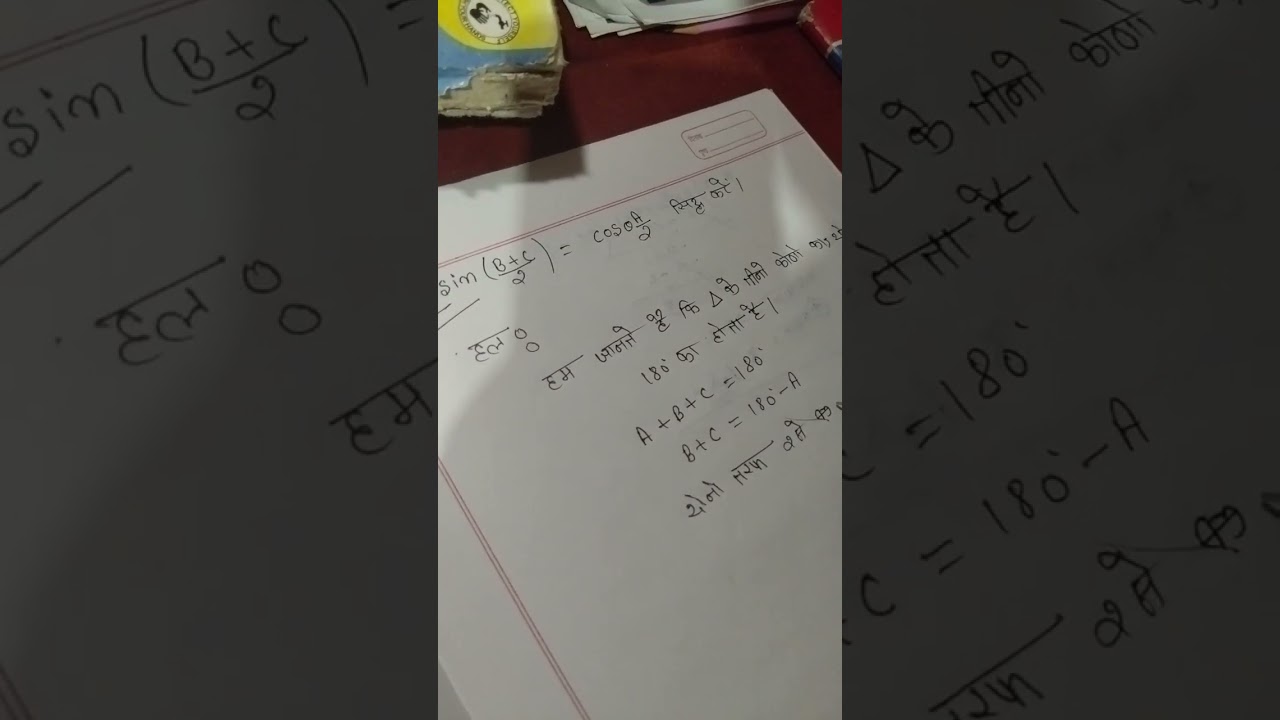 sin (B+C/2) = cosθ A/2 सिद्ध करें।
हल :
हम जानते है कि Δ के तीनो कोणो का
180° का होता है।
A + B + C = 180°
B + C = 180° - A
दोनो तरफ 2 से